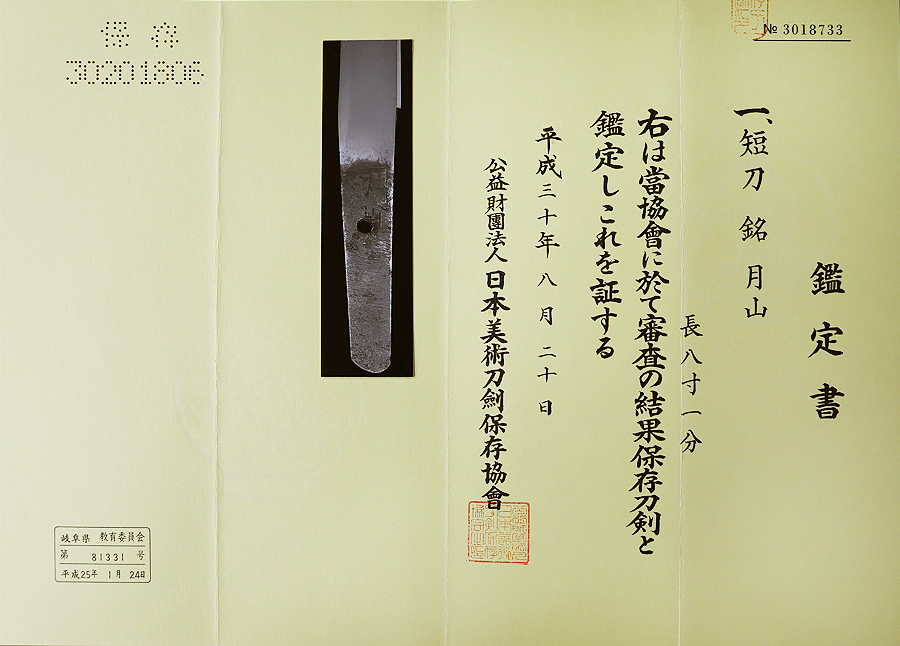 № 3018733
鑑定書
一、短刀 銘 月山
長八寸一分
右は當協會に於て審査の結果保存刀剣と
鑑定しこれを証する
平成三十年八月二十日
公益財團法人日本美術刀劍保存協會
保存
30201806
岐阜県 教育委員会
第 81331 号
平成25年 1月 24日